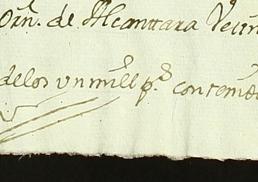 de Alcantara Veçin
delos un mill p.s contenido